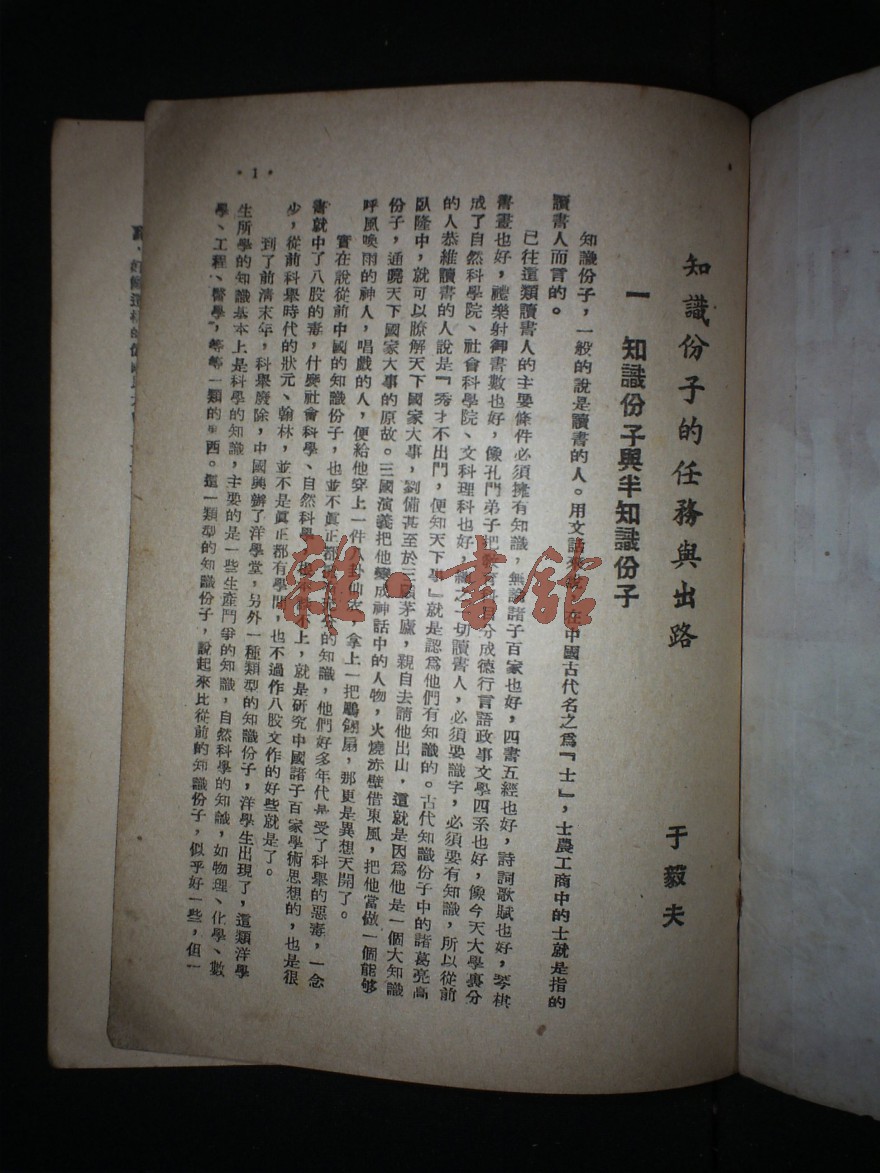 知識份子的任務與出路
于毅夫
一 知識份子與半知識份子
知識份子，一般的說是讀書的人。用文話來說，在中國古代名之爲『士』，士農工商中的士就是指的
讀書人而言的。
已往這類讀書人的主要條件必須擁有知識，無論諸子百家也好，四書五經也好，詩詞歌賦也好，琴棋
書畫也好，禮樂射御書數也好，像孔門弟子把 分成德行言語政事文學四系也好，像今天大學裏分
成了自然科學院、社會科學院、文科理科也好，總之一切讀書人，必須要識字，必須要有知識，所以從前
的人恭維讀書的人說是『秀才不出門，便知天下事』就是認爲他們有知識的。古代知識份子中的諸葛亮高
臥隆中，就可以瞭解天下國家大事，劉備甚至於三顧茅廬，親自去請他出山，這就是因爲他是一個大知識
份子，通曉天下國家大事的原故。三國演義把他變成神話中的人物，火燒赤壁借東風，把他當做一個能够
呼風喚雨的神人，唱戲的人，便給他穿上一件八卦仙衣，拿上一把鵰翎扇，那更是異想天開了。
實在說從前中國的知識份子，也並不眞正都 的知識，他們好多年代是受了科舉的惡毒，一念
書就中了八股的毒，什麼社會科學、自然科學 不上，就是研究中國諸子百家學術思想的，也是很
少，從前科舉時代的狀元、翰林，並不是眞正都有學問，也不過作八股文作的好些就是了。
到了前清末年，科舉廢除，中國興辦了洋學堂，另外一種類型的知識份子，洋學生出現了，這類洋學
生所學的知識基本上是科學的知識，主要的是一些生產鬥爭的知識，自然科學的知識，如物理、化學、數
學、工程、醫學，等等一類的東西。這一類型的知識份子，說起來比從前的知識份子，似乎好一些，但一
·1·
雜·書館